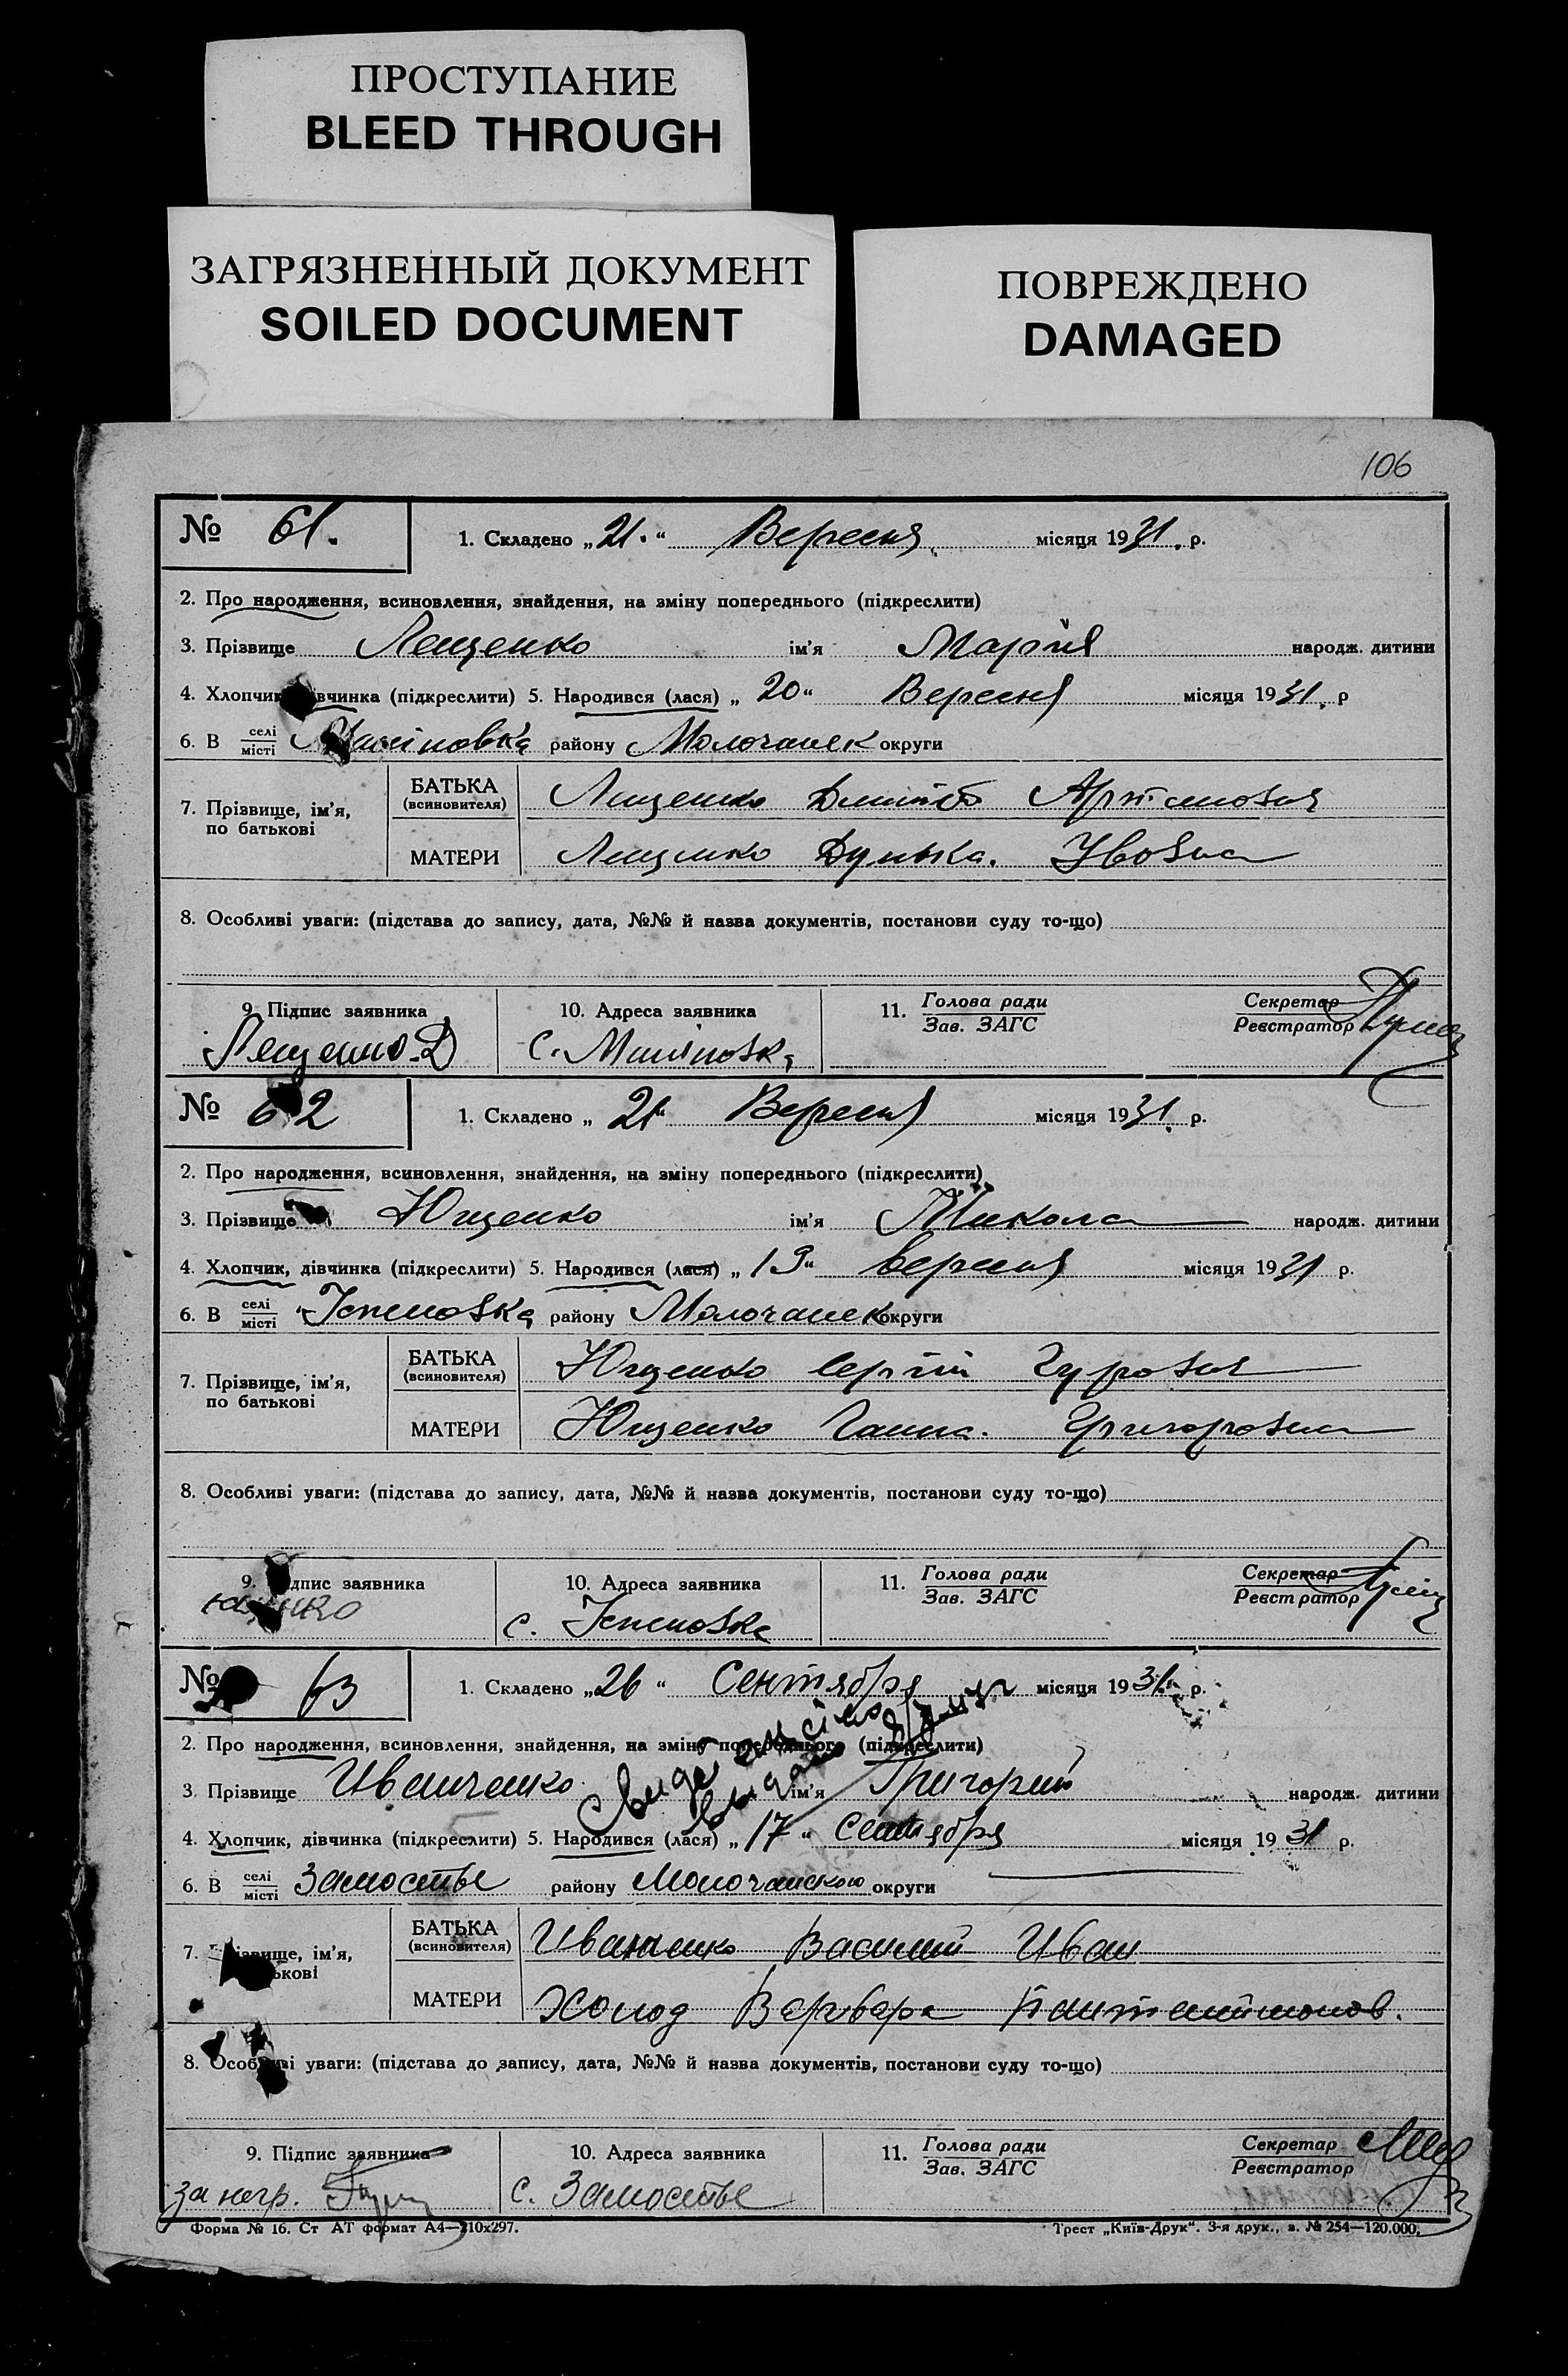 ПРОСТУПАНИЕ
BLEED THROUGH
ЗАГРЯЗНЕННЫЙ ДОКУМЕНТ
SOILED DOCUMENT
ПОВРЕЖДЕНО
DAMAGED
106
№ 61. 1. Складено „21.“ Вересня місяця 1931. р.
2. Про народження, всиновлення, знайдення, на зміну попереднього (підкреслити)
3. Прізвище Лещенко ім'я Марія народж. дитини
4. Хлопчик вчинка (підкреслити) 5. Народився (лася) „20“ Вересня місяця 1931. р
6. В селі місті району Молочанськ округи
7. Прізвище, ім'я, по батькові
БАТЬКА (всиновителя) Лещенко Дмитро
МАТЕРИ Лещенко Дунька.
8. Особливі уваги: (підстава до запису, дата, №№ й назва документів, постанови суду то-що)
9. Підпис заявника 10. Адреса заявника 11. Голова ради Зав. ЗАГС Секретар Реєстратор
Лещенко Д с.
№ 62 1. Складено „21“ Вересня місяця 1931. р.
2. Про народження, всиновлення, знайдення, на зміну попереднього (підкреслити)
3. Прізвище Ющенко ім'я Микола народж. дитини
4. Хлопчик, дівчинка (підкреслити) 5. Народився (лася) „19“ Вересня місяця 1931 р.
6. В селі місті району Молочанськ округи
7. Прізвище, ім'я, по батькові
БАТЬКА (всиновителя) Ющенко Сергій
МАТЕРИ Ющенко Ганна. Григоровна
8. Особливі уваги: (підстава до запису, дата, №№ й назва документів, постанови суду то-що)
9. дпис заявника 10. Адреса заявника 11. Голова ради Зав. ЗАГС Секретар Реєстратор
с.
№ 63 1. Складено „26“ Сентября місяця 1931. р.
2. Про народження, всиновлення, знайдення, на зміну попереднього (підкреслити)
3. Прізвище Иванченко ім'я Григорий народж. дитини
4. Хлопчик, дівчинка (підкреслити) 5. Народився (лася) „17“ Сентября місяця 1931 р.
6. В селі місті Замостье району Молочанского округи
7. ізвище, ім'я, ькові
БАТЬКА (всиновителя) Иванченко Василий Иван
МАТЕРИ Холод Варвара
8. Особливі уваги: (підстава до запису, дата, №№ й назва документів, постанови суду то-що)
9. Підпис заявника 10. Адреса заявника 11. Голова ради Зав. ЗАГС Секретар Реєстратор
за негр. с. Замостье
Форма № 16. Ст АТ формат А4—210х297. Трест „Київ-Друк“. 3-я друк., з. № 254—120.000.